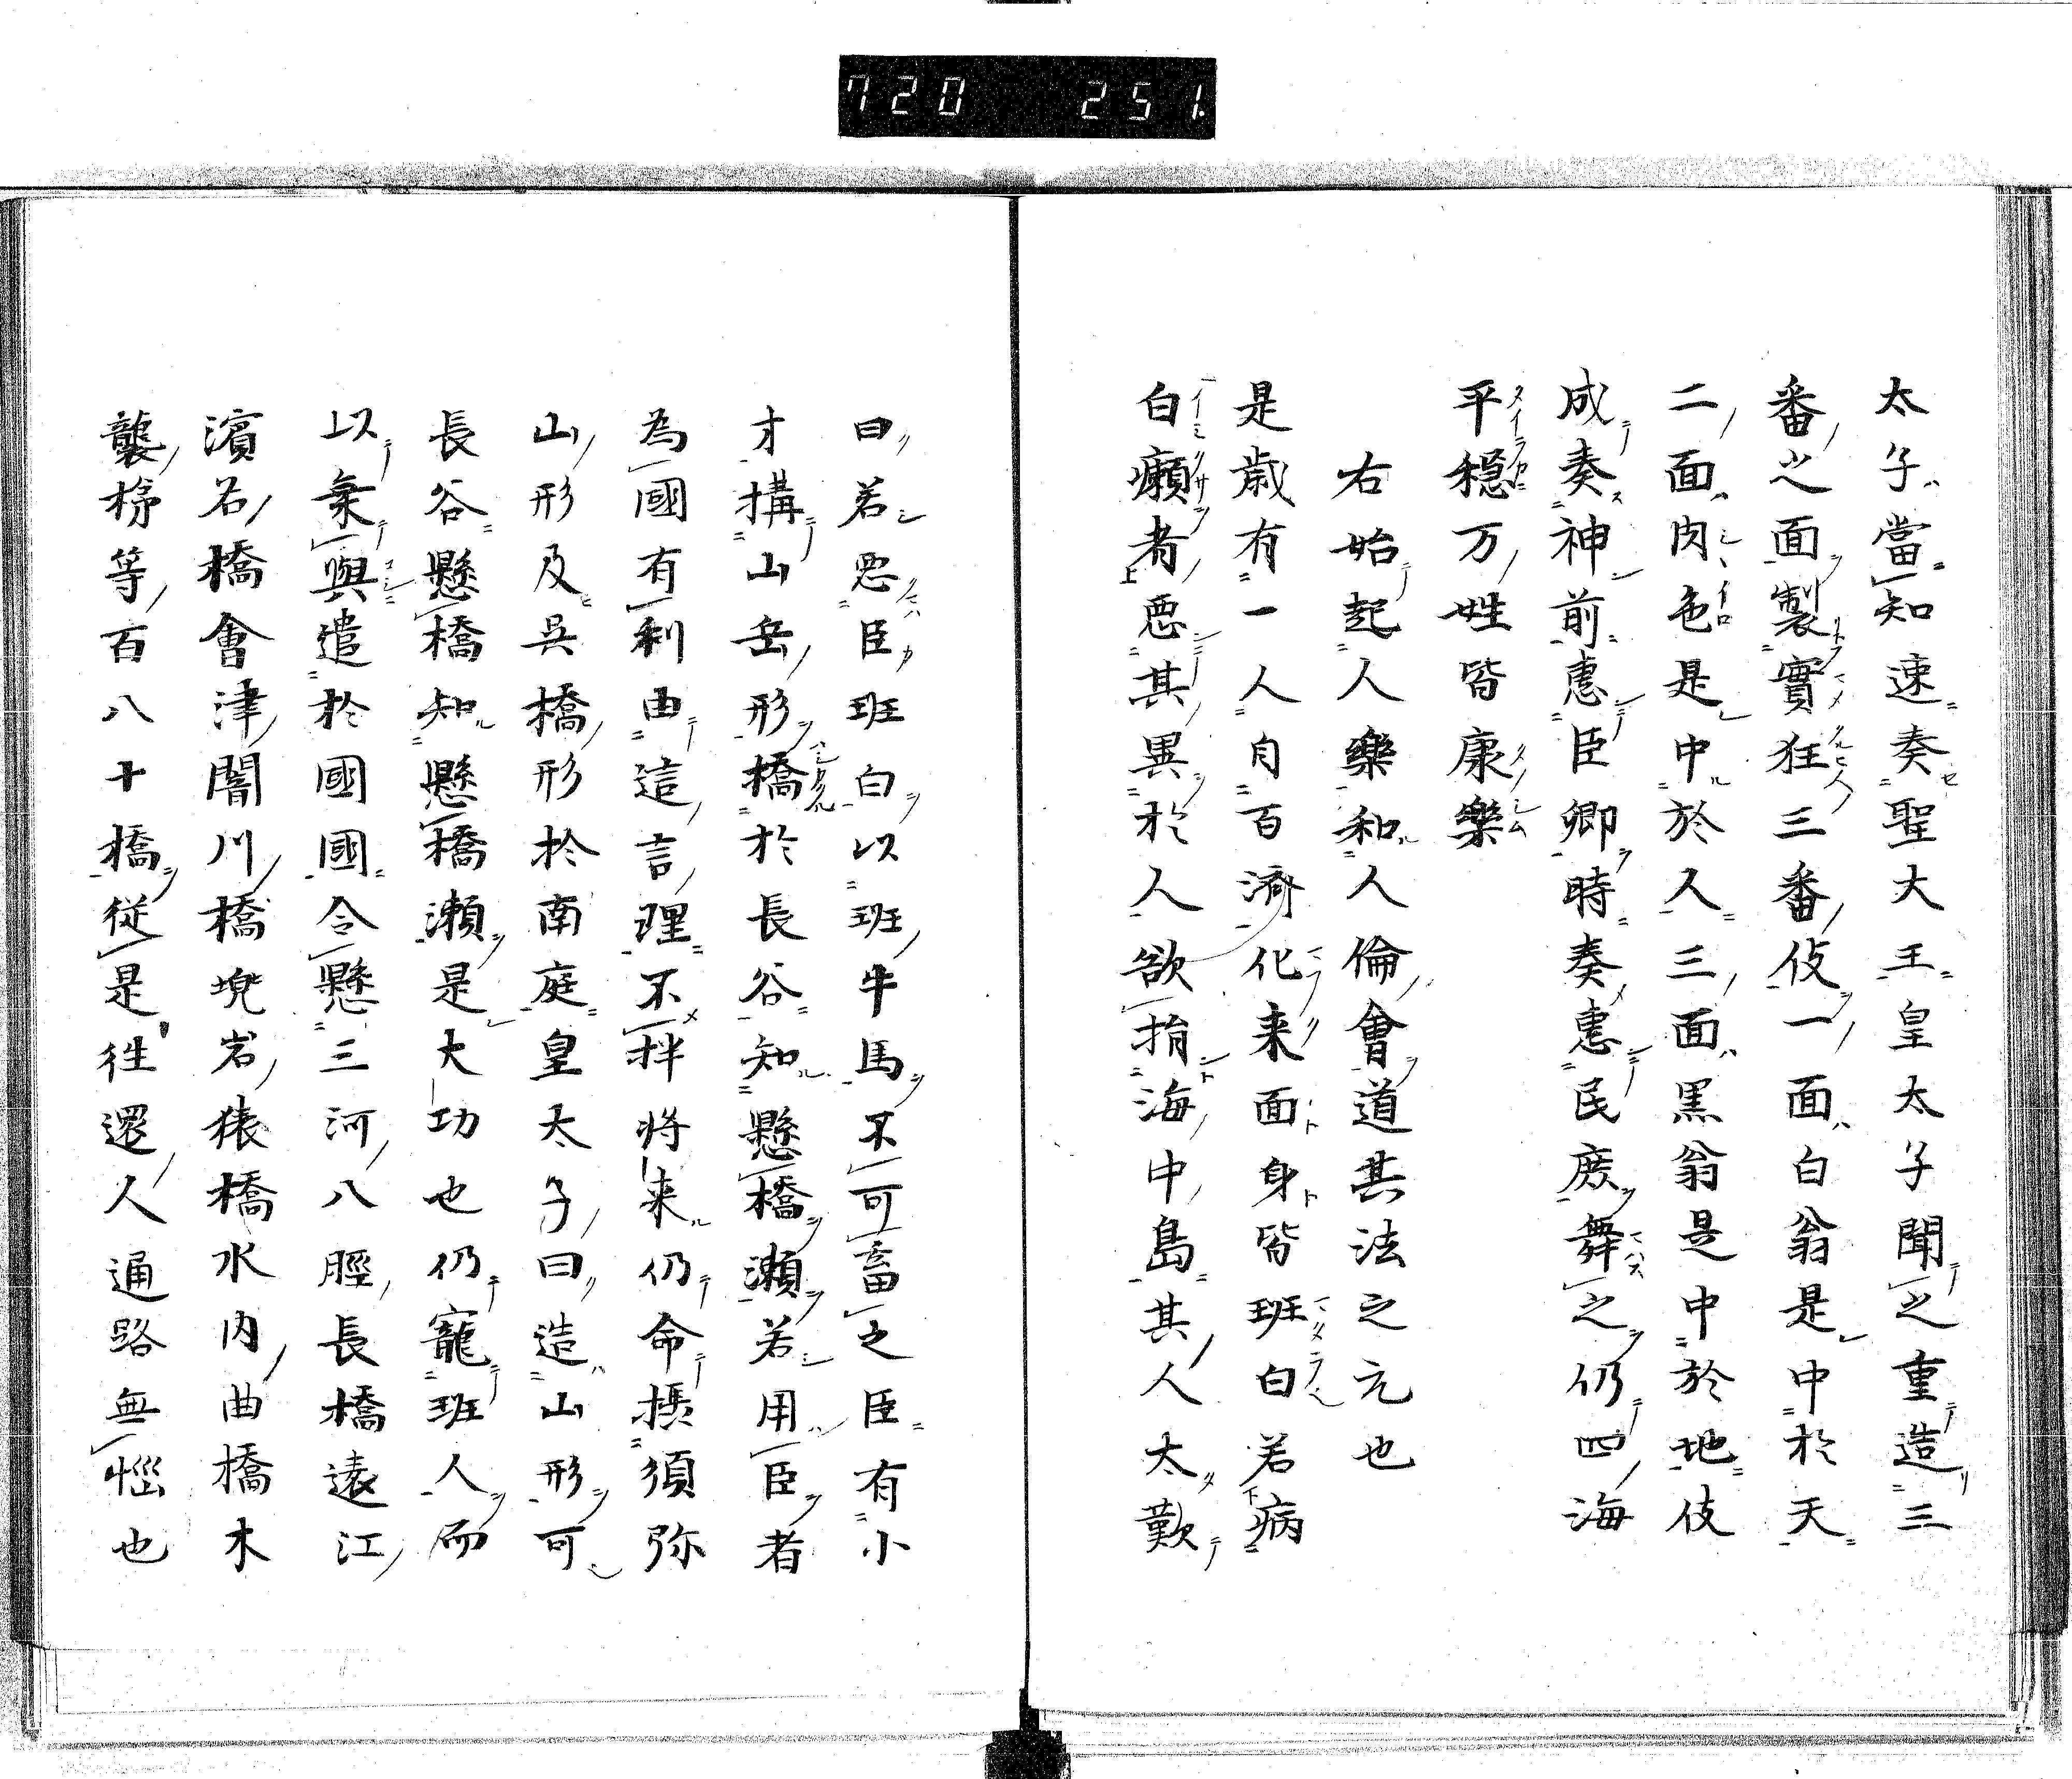 720 251.
太子當知速奏聖大王皇太子聞之重造三
番之面製實狂三番伎一面白翁是中於天
二面肉色是中於人三面黒翁是中於地伎
成奏神前恵臣卿時奏恵民庶舞之仍四海
平穏万姓皆康樂
右始起人樂和人倫會道其法之元也
是歳有一人自百済化来面身皆班白若病
白癩者悪其異於人欲捐海中島其人太歎
曰若悪臣班白以班牛馬不可畜之臣有小
才構山岳形橋於長谷知懸橋瀬若用臣者
為國有利由這言理不拌将来仍命摸須弥
山形及呉橋形於南庭皇太子曰造山形可
長谷懸橋知懸橋瀬是大功也仍寵班人而
以乗輿遣於國國令懸三河八脛長橋遠江
濱名橋會津闇川橋兜岩猿橋水内曲橋木
襲桥等百八十橋従是往還人通路無悩也